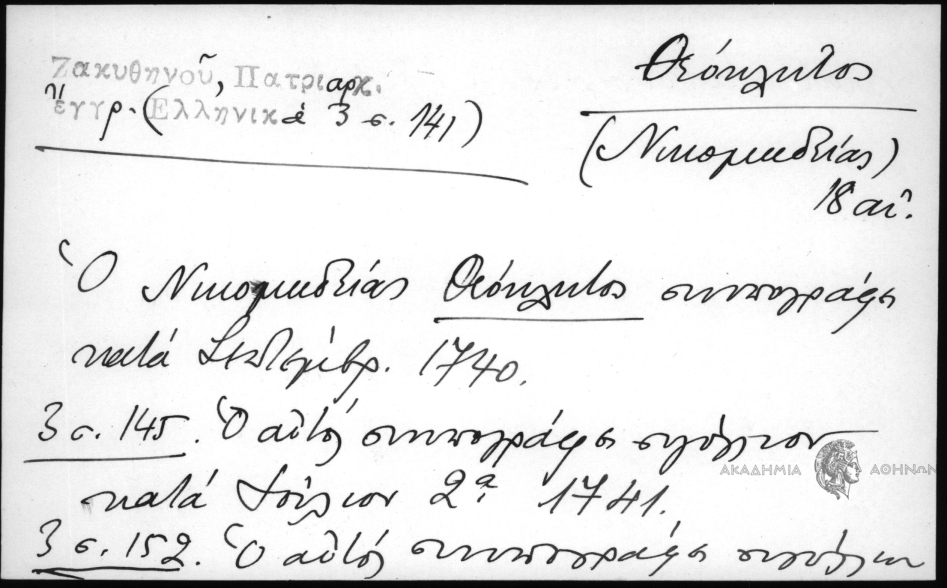 Ζακυθηνοῦ, Πατριαρχ.
ἔγγρ. (Ἑλληνικά 3 σ. 141)
Θεόκλητος
(Νικομηδείας)
18 αἰ.
Ὁ Νικομηδείας Θεόκλητος συνυπογράφει
κατά Σεπτέμβρ. 1740.
3 σ. 145. Ὁ αὐτός συνυπογράφει σιγίλλιον
κατά Ἰούλιον 2ᾳ 1741.
ΑΚΑΔΗΜΙΑ ΑΘΗΝΩΝ
3 σ. 152. Ὁ αὐτός συνυπογράφει σιγίλλιον